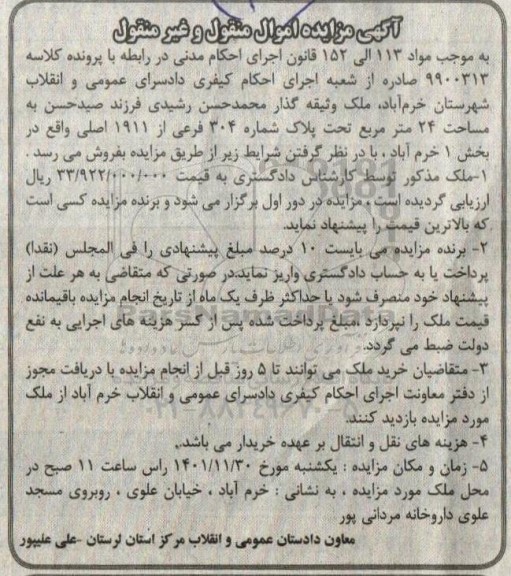 آگهی مزایده اموال منقول و غیر منقول
به موجب مواد ۱۱۳ الی ۱۵۲ قانون اجرای احکام مدنی در رابطه با پرونده کلاسه
۹۹۰۰۳۱۳ صادره از شعبه اجرای احکام کیفری دادسرای عمومی و انقلاب
شهرستان خرم‌آباد، ملک وثیقه گذار محمدحسن رشیدی فرزند صیدحسن به
مساحت ۲۴ متر مربع تحت پلاک شماره ۳۰۴ فرعی از ۱۹۱۱ اصلی واقع در
بخش ۱ خرم آباد ، با در نظر گرفتن شرایط زیر از طریق مزایده بفروش می رسد .
۱-ملک مذکور توسط کارشناس دادگستری به قیمت ۳۳/۹۲۲/۰۰۰/۰۰۰ ریال
ارزیابی گردیده است ، مزایده در دور اول برگزار می شود و برنده مزایده کسی است
که بالاترین قیمت را پیشنهاد نماید.
۲- برنده مزایده می بایست ۱۰ درصد مبلغ پیشنهادی را فی المجلس (نقدا)
پرداخت یا به حساب دادگستری واریز نماید.در صورتی که متقاضی به هر علت از
پیشنهاد خود منصرف شود یا حداکثر ظرف یک ماه از تاریخ انجام مزایده باقیمانده
قیمت ملک را نپردازد ،مبلغ پرداخت شده پس از کسر هزینه های اجرایی به نفع
دولت ضبط می گردد.
۳- متقاضیان خرید ملک می توانند تا ۵ روز قبل از انجام مزایده با دریافت مجوز
از دفتر معاونت اجرای احکام کیفری دادسرای عمومی و انقلاب خرم آباد از ملک
مورد مزایده بازدید کنند.
۴- هزینه های نقل و انتقال بر عهده خریدار می باشد.
۵- زمان و مکان مزایده : یکشنبه مورخ ۱۴۰۱/۱۱/۳۰ راس ساعت ۱۱ صبح در
محل ملک مورد مزایده ، به نشانی : خرم آباد ، خیابان علوی ، روبروی مسجد
علوی داروخانه مردانی پور
معاون دادستان عمومی و انقلاب مرکز استان لرستان -علی علیپور
ParsNamadData